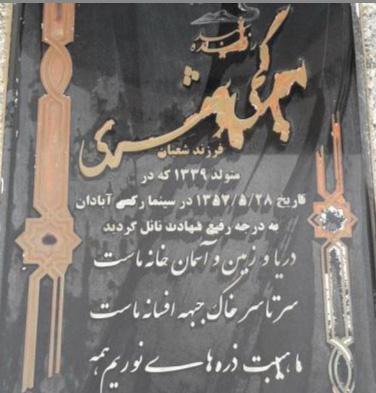 شهید
زنده
فرزند شعبان
متولد ۱۳۳۹ که در
تاریخ ۱۳۵۷/۵/۲۸ در سینما رکس آبادان
به درجه رفیع شهادت نائل گردید
دریا و زمین و آسمان خانه ماست
سرتاسر خاک جبهه افسانه ماست
ما هیبت ذره های نوریم همه